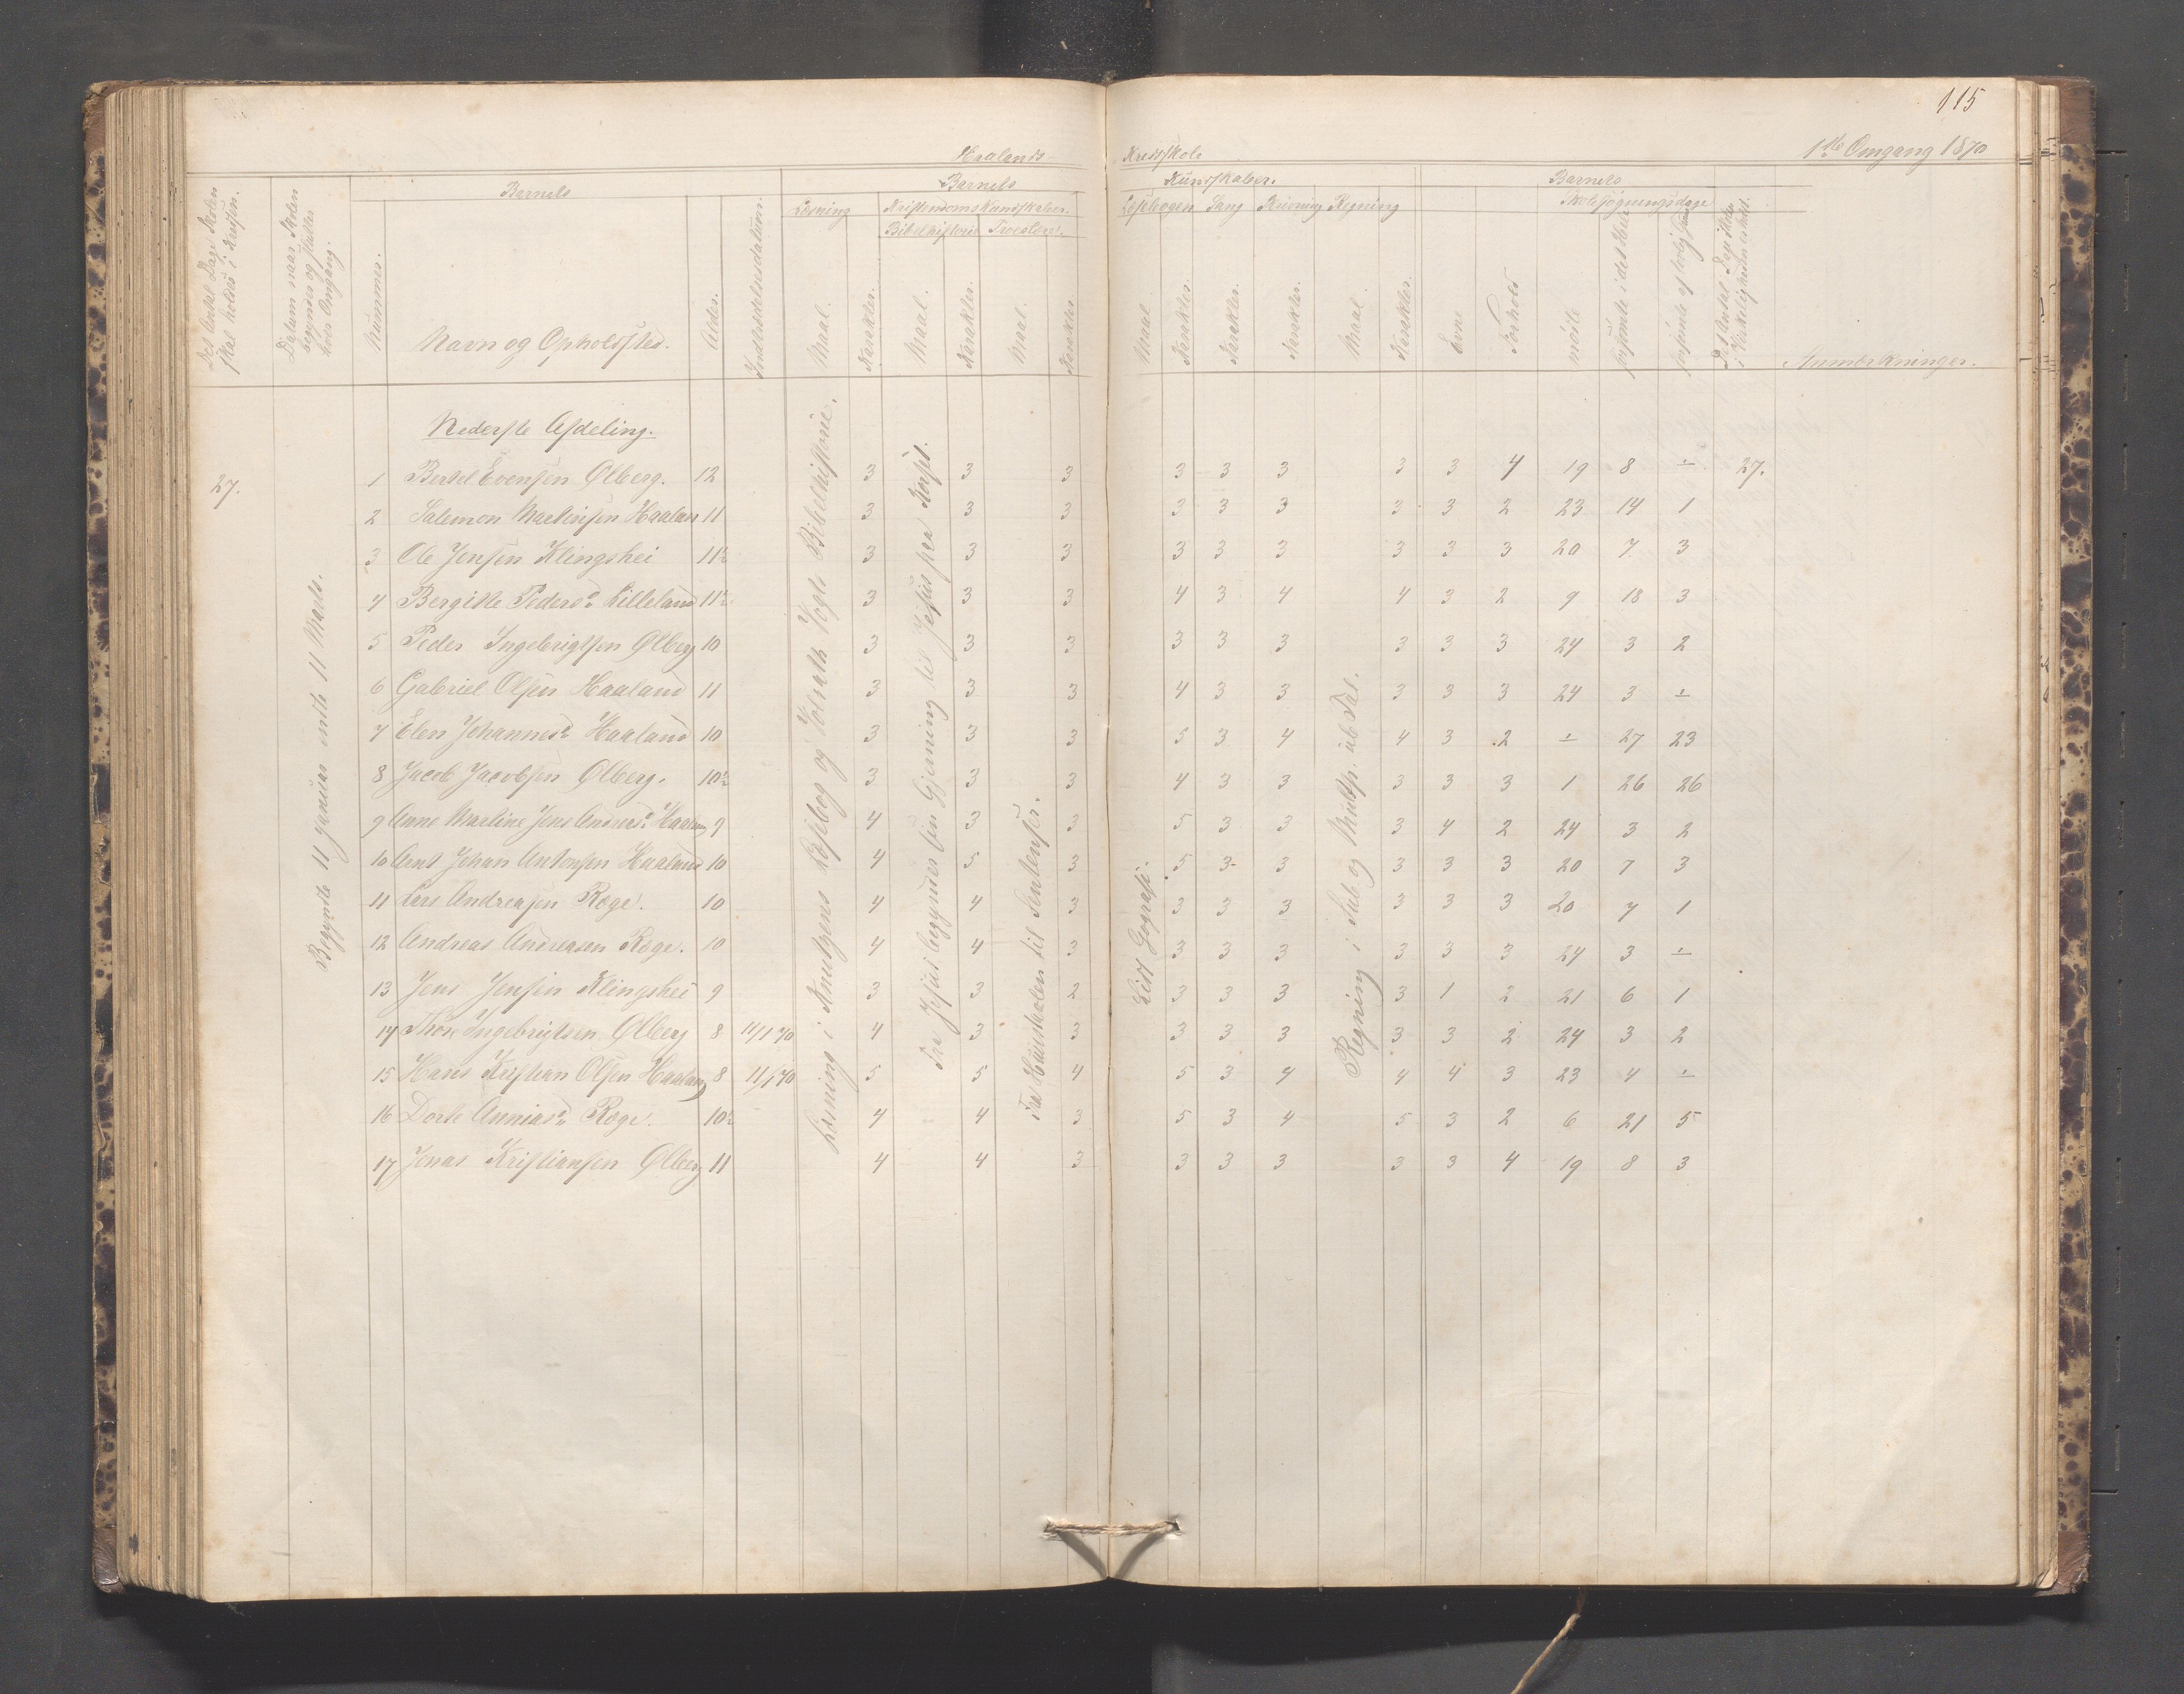 115
Haalands Kredsskole 1ste Omgang 1870
Det Antal Dage Skolen skal holdes i Kredsen.
Datum naar Skolen begynder og slutter hver Omgang.
Barnets
Nummer.
Navn og Opholdssted.
Alder.
Indtrædelsesdatum.
Barnets Kundskaber.
Læsning
Maal. Karakter.
Kristendoms Kundskaber.
Bibelhistorie Troeslære.
Maal. Karakter. Maal. Karakter
Læsebogen Sang Skrivning Regning
Maal. Karakter. Karakter. Karakter. Maal. Karakter.
Barnets
Evne Forhold
Skolesøgningsdage
mödte forsömte i det Hele forsömte af lovlig Grund
Det Antal Dage Skolen i Virkeligheden er holdt.
Anmærkninger.
Nederste Afdeling.
27.
Begyndte 11 Januar endte 11 Marts.
Læsning i Knutzens Læsebog og Volrath Vogts Bibelhistorie.
Fra Jesus begynder sin Gjerning til Jesus paa Korset.
Fra Huustavlen til Sentenser.
Lidt Geografi.
Regning i Sub og Multip. ub Tal.
1 Bertel Evensen Ølberg. 12 3 3 3 3 3 3 3 3 4 19 8 ÷ 27.
2 Salemon Martinsen Haalan 11 3 3 3 3 3 3 3 3 2 23 14 1
3 Ole Jensen Klingshei 11½ 3 3 3 3 3 3 3 3 3 20 7 3
4 Bergitte Pedersd. Lilleland 11½ 3 3 3 4 3 4 4 3 2 9 18 3
5 Peder Ingebrigtsen Ølberg 10 3 3 3 3 3 3 3 3 3 24 3 2
6 Gabriel Olsen Haaland 11 3 3 3 4 3 3 3 3 3 24 3 ÷
7 Elen Johannesd. Haaland 10 3 3 3 5 3 4 4 3 2 ÷ 27 23
8 Jacob Jacobsen Ølberg. 10½ 3 3 3 4 3 3 3 3 3 1 26 26
9 Anne Martine Jens Andreasd. Haaland 9 4 3 3 5 3 3 3 4 2 24 3 2
10 Arnt Johan Antonsen Haaland 10 4 5 3 5 3 3 3 3 3 20 7 3
11 Lars Andreasen Røge. 10 4 4 3 3 3 3 3 3 3 20 7 1
12 Andreas Andreasen Røge. 10 4 4 3 3 3 3 3 3 3 24 3 ÷
13 Jens Jensen Klingshei 9 3 3 2 3 3 3 3 1 2 21 6 1
14 Thore Ingebrigtsen Ølberg 8 11/1 70 4 3 3 3 3 3 3 3 2 24 3 2
15 Hans Kristian Olsen Haaland 8 11/1 70 5 5 4 5 3 4 4 4 3 23 4 ÷
16 Dorte Anniasd. Røge. 10½ 4 4 3 5 3 4 5 3 2 6 21 5
17 Jonas Kristiansen Ølberg 11 4 4 3 3 3 3 3 3 4 19 8 3